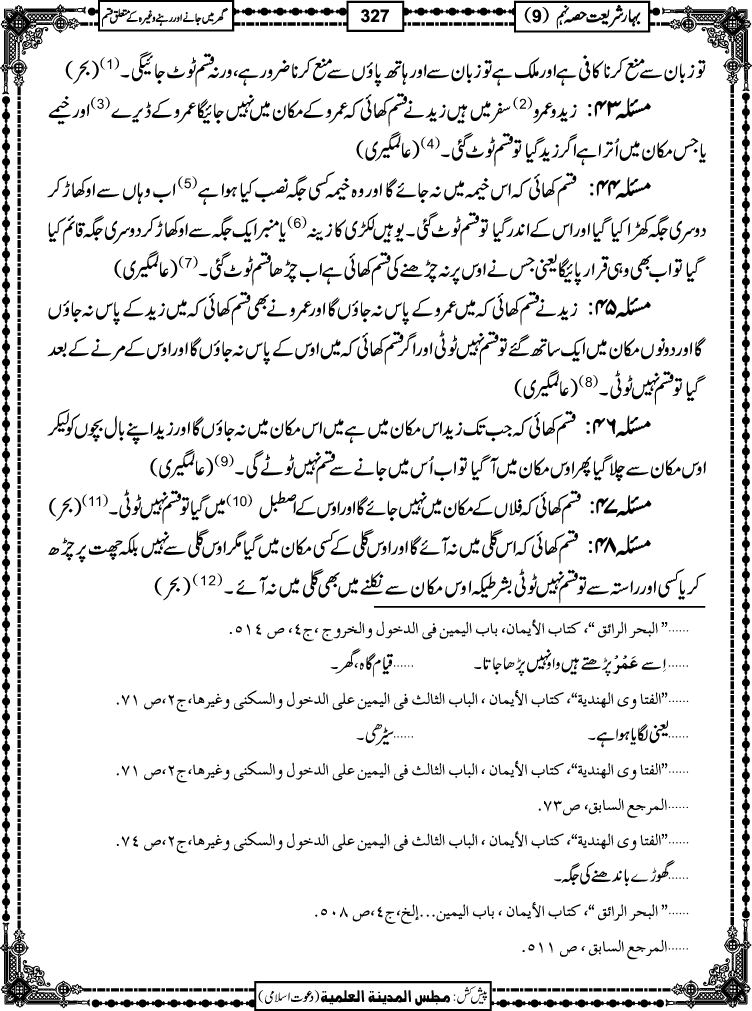 بہار شریعت حصہ نہم (9)
327
گھر میں جانے اور رہنے وغیرہ کے متعلق قسم
تو زبان سے منع کرنا کافی ہے اور ملک ہے تو زبان سے اور ہاتھ پاؤں سے منع کرنا ضرور ہے، ورنہ قسم ٹوٹ جائیگی۔(1) (بحر)
مسئلہ ۴۳: زید و عمرو(2) سفر میں ہیں زید نے قسم کھائی کہ عمرو کے مکان میں نہیں جائیگا عمرو کے ڈیرے(3) اور خیمے
یا جس مکان میں اُترا ہے اگر زید گیا تو قسم ٹوٹ گئی۔(4) (عالمگیری)
مسئلہ ۴۴: قسم کھائی کہ اس خیمہ میں نہ جائے گا اور وہ خیمہ کسی جگہ نصب کیا ہوا ہے(5) اب وہاں سے اوکھاڑ کر
دوسری جگہ کھڑا کیا گیا اور اس کے اندر گیا تو قسم ٹوٹ گئی۔ یوہیں لکڑی کا زینہ(6) یا منبر ایک جگہ سے اوکھاڑ کر دوسری جگہ قائم کیا
گیا تو اب بھی وہی قرار پائیگا یعنی جس نے اوس پر نہ چڑھنے کی قسم کھائی ہے اب چڑھا قسم ٹوٹ گئی۔(7) (عالمگیری)
مسئلہ ۴۵: زید نے قسم کھائی کہ میں عمرو کے پاس نہ جاؤں گا اور عمرو نے بھی قسم کھائی کہ میں زید کے پاس نہ جاؤں
گا اور دونوں مکان میں ایک ساتھ گئے تو قسم نہیں ٹوٹی اور اگر قسم کھائی کہ میں اوس کے پاس نہ جاؤں گا اور اوس کے مرنے کے بعد
گیا تو قسم نہیں ٹوٹی۔(8) (عالمگیری)
مسئلہ ۴۶: قسم کھائی کہ جب تک زید اس مکان میں ہے میں اس مکان میں نہ جاؤں گا اور زید اپنے بال بچوں کو لیکر
اوس مکان سے چلا گیا پھر اوس مکان میں آ گیا تو اب اُس میں جانے سے قسم نہیں ٹوٹے گی۔(9) (عالمگیری)
مسئلہ ۴۷: قسم کھائی کہ فلاں کے مکان میں نہیں جائے گا اور اوس کے اصطبل(10) میں گیا تو قسم نہیں ٹوٹی۔(11) (بحر)
مسئلہ ۴۸: قسم کھائی کہ اس گلی میں نہ آئے گا اور اوس گلی کے کسی مکان میں گیا مگر اوس گلی سے نہیں بلکہ چھت پر چڑھ
کر یا کسی اور راستہ سے تو قسم نہیں ٹوٹی بشرطیکہ اوس مکان سے نکلنے میں بھی گلی میں نہ آئے۔(12) (بحر)
......"البحر الرائق"، کتاب الأیمان، باب الیمین فی الدخول والخروج ،ج٤، ص ٥١٤.
......اِسے عَمْرْ پڑھتے ہیں واو نہیں پڑھا جاتا۔ ......قیام گاہ، گھر۔
......"الفتاوی الهندیة"، کتاب الأیمان، الباب الثالث فی الیمین علی الدخول والسکنی وغیرها،ج٢،ص ٧١.
......یعنی لگایا ہوا ہے۔ ......سیڑھی۔
......"الفتاوی الهندیة"، کتاب الأیمان ، الباب الثالث فی الیمین علی الدخول والسکنی وغیرها،ج٢،ص ٧١.
......المرجع السابق، ص٧٣.
......"الفتاوی الهندیة"، کتاب الأیمان ، الباب الثالث فی الیمین علی الدخول والسکنی وغیرها،ج٢،ص ٧٤.
......گھوڑے باندھنے کی جگہ۔
......"البحر الرائق"، کتاب الأیمان ، باب الیمین...إلخ،ج٤،ص ٥٠٨.
......المرجع السابق ، ص ٥١١.
پیش کش: مجلس المدینة العلمیة (دعوت اسلامی)